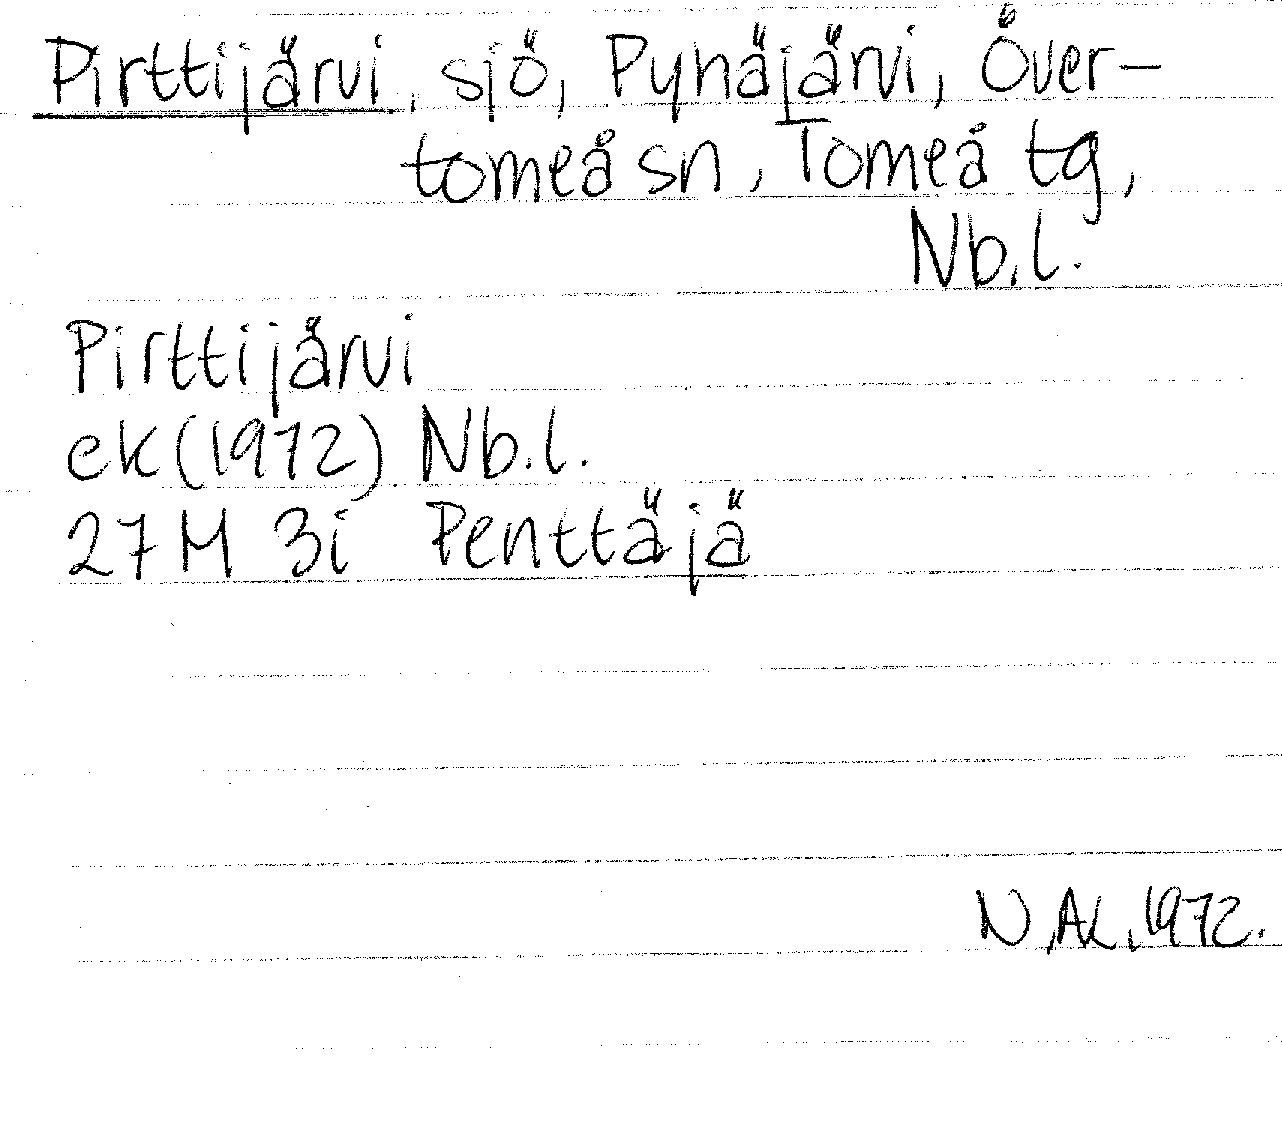 Pirttijärvi, sjö, Pyhäjärvi, Över-
torneå sn, Torneå tg,
Nb.l.
Pirttijärvi
ek (1972) Nb.l.
27 M 3i Penttäjä
N. AL. 1972.